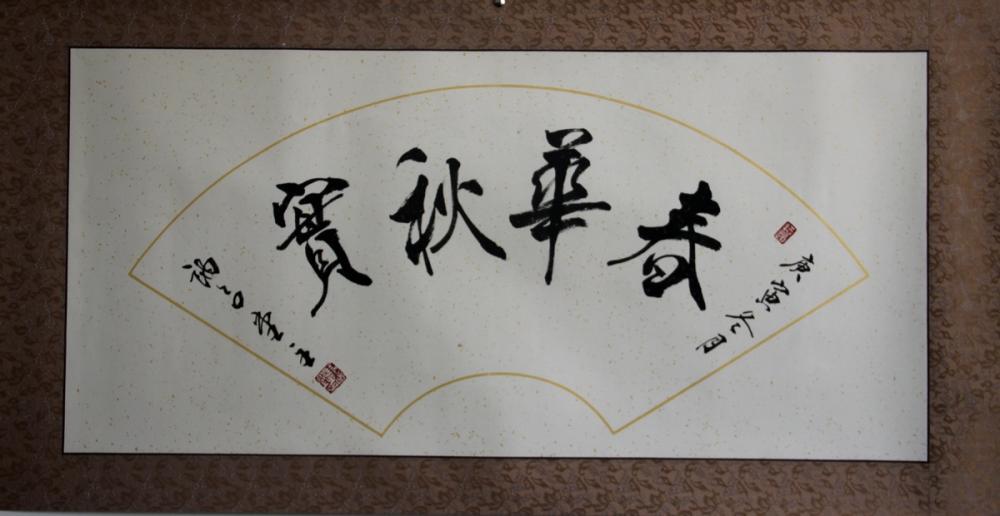 春華秋實
庚寅冬月